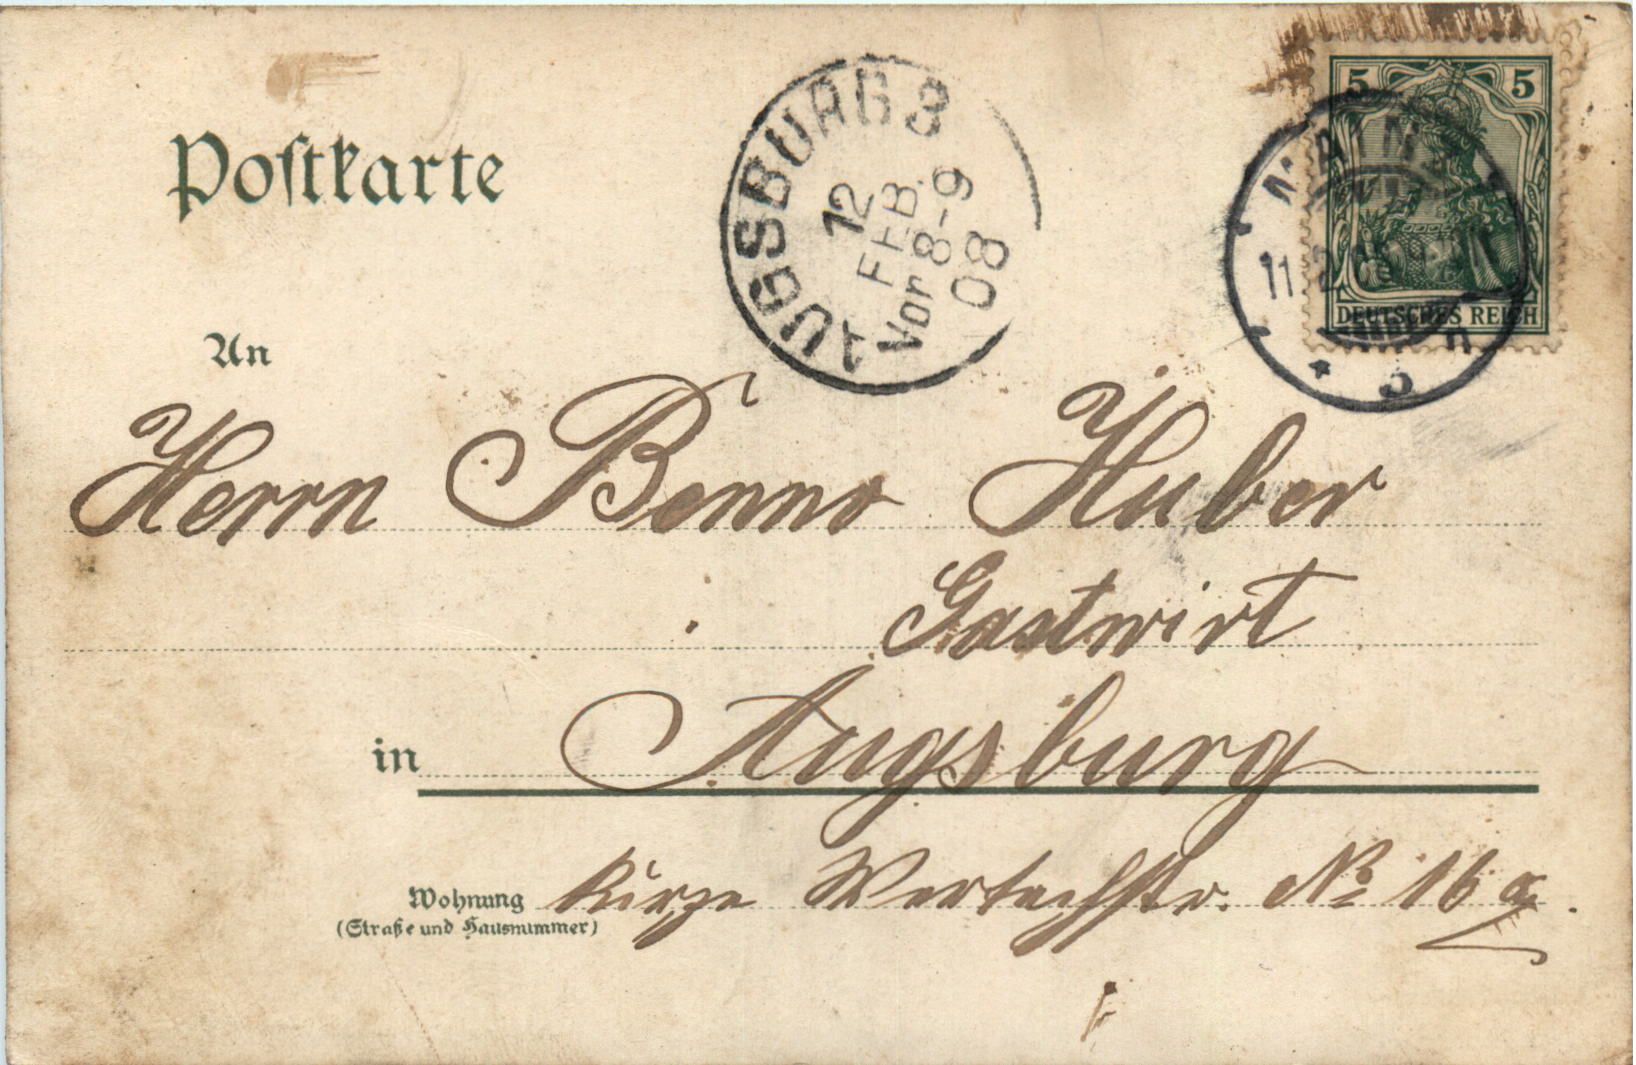 Postkarte
AUGSBURG 3
12
FEB.
Vor 8-9
08
5 5
MAINZ
11.2.
DEUTSCHES REICH
* 3
An
Herrn Benno Huber
Gastwirt
in Augsburg
Wohnung Kurze Wertachstr. No 16 a.
(Straße und Hausnummer)